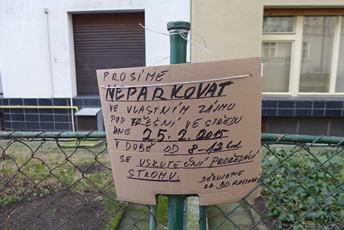 PROSÍME
NEPARKOVAT
VE VLASTNÍM ZÁJMU
POD TŘEŠNÍ VE STŘEDU
DNE 25.2.2015
V DOBĚ OD 8-12 hod.
SE USKUTEČNÍ PROŘEZÁNÍ
STROMU
DĚKUJEME
ZA